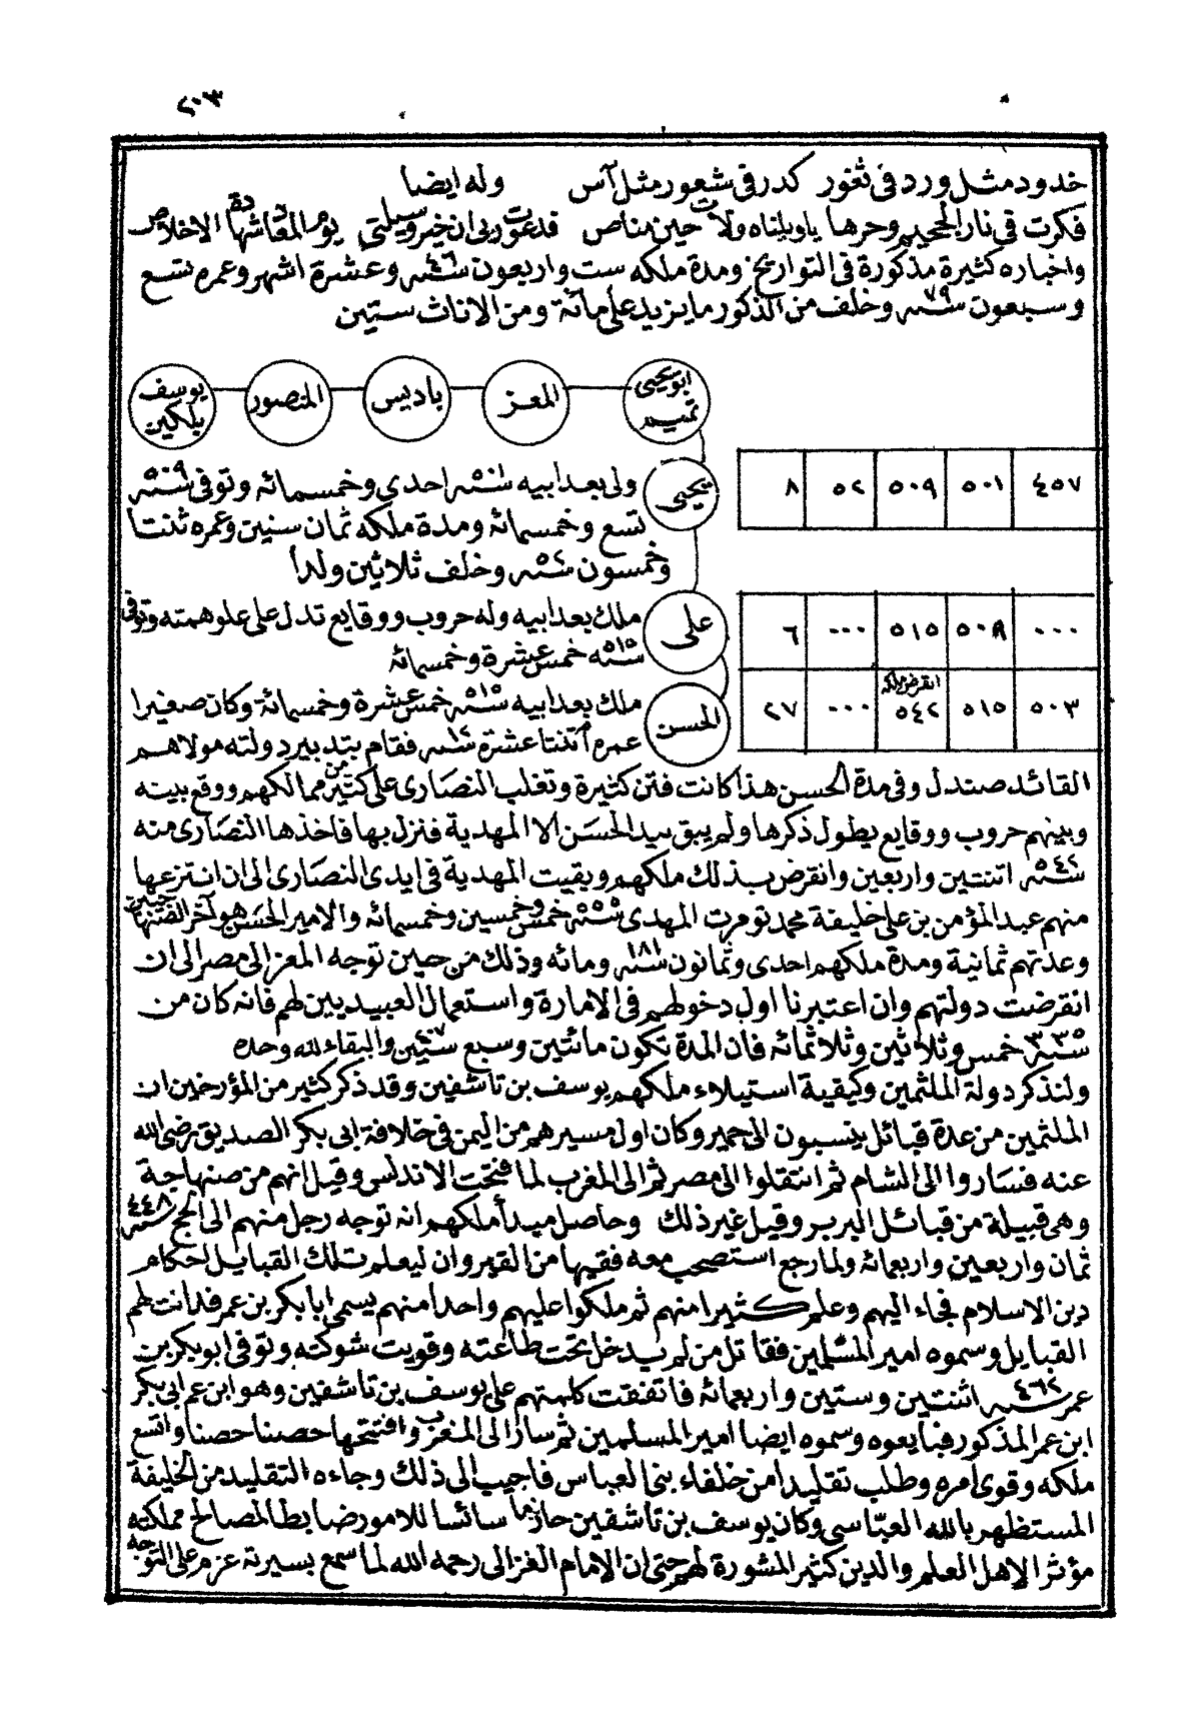 ٢٠٣
خدود مثل ورد فى ثغور كدر فى شعور مثل آس وله ايضا
فكرت فى نار الجحيم وحرها ياويلتاه ولات حين مناص فدعوت ربى ان خير وسيلتى يوم المعاد شهادة الاخلاص
واخباره كثيرة مذكورة فى التواريخ ومدة ملكه ست واربعون سنه ٤٦ وعشرة اشهر وعمره تسع
وسبعون سنه ٧٩ وخلف من الذكور ما يزيد على مائة ومن الاناث ستين
ابو يحيى تميم المعز باديس المنصور يوسف بلكين
٤٥٧ ٥٠١ ٥٠٩ ٥٢ ٨
يحيى ولى بعد ابيه سنه ٥٠١ احدى وخمسمائه وتوفى سنه ٥٠٩
تسع وخمسمائة ومدة ملكه ثمان سنين وعمره ثنتا
وخمسون سنه ٥٢ وخلف ثلاثين ولدا
٠٠٠ ٥٠٩ ٥١٥ ٠٠٠ ٦
على ملك بعد ابيه وله حروب ووقايع تدل على علو همته وتوفى
سنه ٥١٥ خمس عشرة وخمسمائه
٥٠٣ ٥١٥ انقرض ملكه ٥٤٢ ٠٠٠ ٢٧
الحسن ملك بعد ابيه سنه ٥١٥ خمس عشرة وخمسمائة وكان صغيرا
عمره اثنتا عشرة سنه ١٢ فقام بتدبير دولته مولاهم
القائد صندل وفى مدة الحسن هذا كانت فتن كثيرة وتغلب النصارى على كثير من ممالكهم ووقع بينه
وبينهم حروب ووقايع يطول ذكرها ولم يبق بيد الحسن الا المهدية فنزل بها فاخذها النصارى منه
سنه ٥٤٢ اثنتين واربعين وانقرض بذلك ملكهم وبقيت المهدية فى ايدى النصارى الى ان انتزعها
منهم عبد المؤمن بن على خليفة محمد تومرت المهدى سنه ٥٥٥ خمس وخمسين وخمسمائه والامير الحسن هو آخر الصنهاجيين
وعدتهم ثمانية ومدة ملكهم احدى وثمانون سنه ١٨١ ومائه وذلك من حين توجه المعز الى مصر الى ان
انقرضت دولتهم وان اعتبرنا اول دخولهم فى الامارة واستعمال العبيديين لهم فانه كان من
سنه ٣٣٥ خمس وثلاثين وثلاثمائه فان المدة تكون مائتين وسبع سنين ٢٠٧ والبقاء لله وحده
ولنذكر دولة الملثمين وكيفية استيلاء ملكهم يوسف بن تاشفين وقد ذكر كثير من المؤرخين ان
الملثمين من عدة قبائل ينسبون الى حمير وكان اول مسيرهم من اليمن فى خلافة ابى بكر الصديق رضى الله
عنه فساروا الى الشام ثم انتقلوا الى مصر ثم الى المغرب لما فتحت الاندلس وقيل انهم من صنهاجة
وهى قبيلة من قبائل البربر وقيل غير ذلك وحاصل مبدأ ملكهم انه توجه رجل منهم الى الحج سنه ٤٤٨
ثمان واربعين واربعمائه ولما رجع استصحب معه فقيها من القيروان ليعلم تلك القبايل احكام
دين الاسلام فجاء اليهم وعلم كثيرا منهم ثم ملكوا عليهم واحدا منهم يسمى ابا بكر بن عمر فدانت لهم
القبايل وسموه امير المسلمين فقاتل من لم يدخل تحت طاعته وقويت شوكته وتوفى ابو بكر بن
عمر سنه ٤٦٢ اثنتين وستين واربعمائه فاتفقت كلمتهم على يوسف بن تاشفين وهو ابن عم ابى بكر
ابن عمر المذكور فبايعوه وسموه ايضا امير المسلمين ثم سار الى المغرب وافتتحها حصنا حصنا واتسع
ملكه وقوى امره وطلب تقليدا من خلفاء بنى العباس فاجيب الى ذلك وجاءه التقليد من الخليفة
المستظهر بالله العباسى وكان يوسف بن تاشفين حازما سائسا للامور ضابطا لمصالح مملكته
مؤثرا لاهل العلم والدين كثير المشورة لهم حتى ان الامام الغزالى رحمه الله لما سمع بسيرته عزم على التوجه